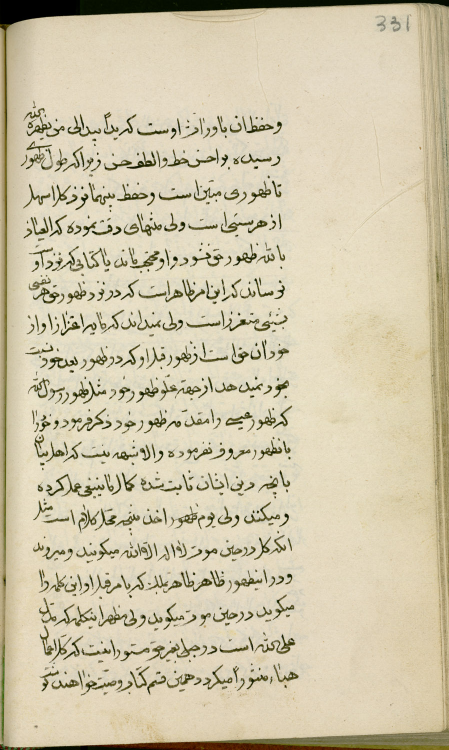 331
و حفظ آن باوراثت اوست که یداً بید الی من یظهره الله
رسیده بواحسن خط و الطف حسن زیرا که طول ظهوری
تا ظهوری مبین است و حفظ بینهما نزد کل اسهل
از هر سیئی است ولی منتهای دقت نموده که العیاذ
بالله ظهور حق نشود و او محتجب ماند یا کتابی که نزد او است
نوساند که این امر ظاهر است که در نزد ظهور حق هر نفسی
بشیئی متعزز است ولی نمیداند که مایه اعتزاز او از
خود آن حق است از ظهور قبل او که در ظهور بعد خود نسبت
بخود نمیدهد از جهة علو ظهور خود مثل ظهور رسول الله
که ظهور عیسی را مقدمه ظهور خود ذکر فرمود و خود را
بانظهور معروف نفرموده و الا شبهه نیست که اهل بیان
بانچه دین ایشان ثابت شده کمال ما ینبغی عمل کرده
و میکنند ولی یوم ظهور اخذ نتیجه محل کلام است مثل
انکه کل در حین موت لا اله الا الله میکویند و میروند
و در انیظهور ظاهر ظاهر یلک که بامر قبل او این کلمه را
میکوید در حین موت میکوید ولی مظهر اینکلمه که تدل
علی الله است در جبل بغیر حق مستور اینست که کل اعمال
هباء منثوراً میکردد همین قسم کتاب وصیت خواهند نوشت